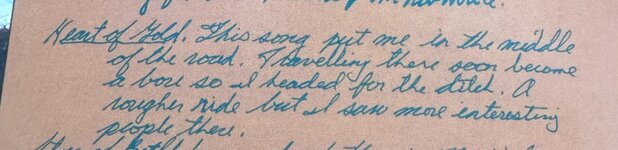 Heart of Gold. This song put me in the middle
of the road. Travelling there soon became
a bore so I headed for the ditch. A
rougher ride but I saw more interesting
people there.